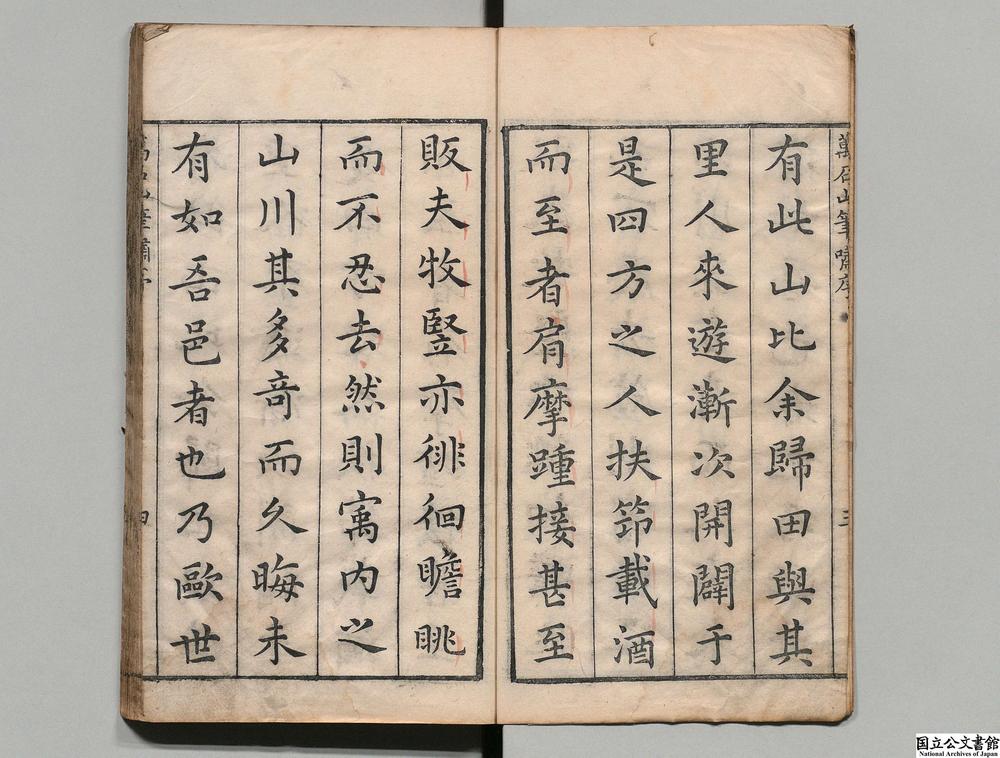 萬石山筆嘯序
三
有此山比余歸田與其
里人來遊漸次開闢于
是四方之人扶筇載酒
而至者肩摩踵接甚至
販夫牧豎亦徘徊瞻眺
而不忍去然則㝢内之
山川其多竒而久晦未
有如吾邑者也乃歐世
四
国立公文書館
National Archives of Japan